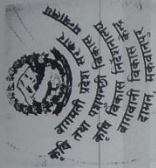 बागमती प्रदेश सरकार
कृषि तथा पशुपन्छी विकास मन्त्रालय
कृषि विकास निर्देशनालय
बागवानी विकास
दामन, मकवानपुर